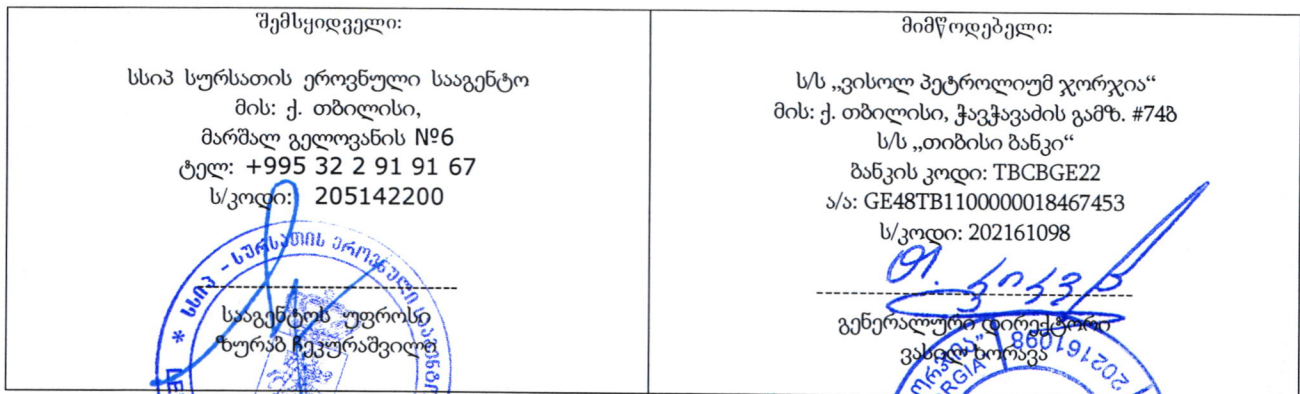 შემსყიდველი:
სსიპ სურსათის ეროვნული სააგენტო
მის: ქ. თბილისი,
მარშალ გელოვანის №6
ტელ: +995 32 2 91 91 67
ს/კოდი: 205142200
სააგენტოს უფროსი
ზურაბ ჩეკურაშვილი
* სსიპ - სურსათის ეროვნული სააგენტო
მიმწოდებელი:
ს/ს „ვისოლ პეტროლიუმ ჯორჯია“
მის: ქ. თბილისი, ჭავჭავაძის გამზ. #74ბ
ს/ს „თიბისი ბანკი“
ბანკის კოდი: TBCBGE22
ა/ა: GE48TB1100000018467453
ს/კოდი: 202161098
გენერალური დირექტორი
ვასილ ხორავა
202161098